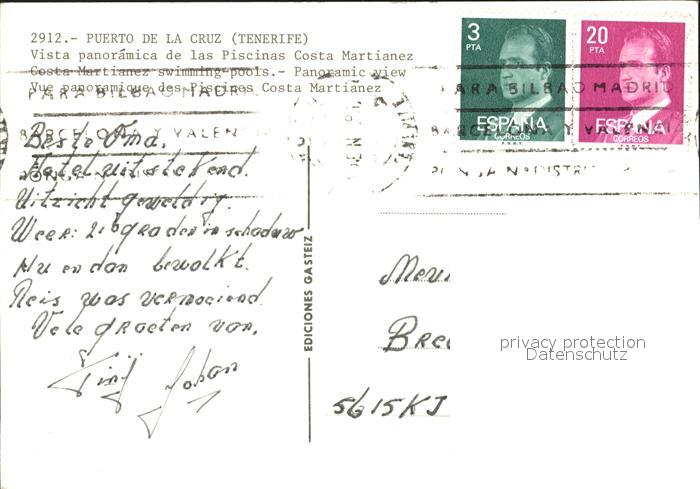 2912.- PUERTO DE LA CRUZ (TENERIFE)
Vista panorámica de las Piscinas Costa Martianez
Costa Martianez swimming-pools.- Panoramic view
Vue panoramique des Piscines Costa Martianez
3
PTA
ESPAÑA
CORREOS
F.N.M.T.
20
PTA
ESPAÑA
CORREOS
PARA BILBAO MADRID
BARCELONA Y VALENCIA
PARA BILBAO MADRID
BARCELONA Y VALENCIA
PONGA Nº DISTRI
Beste Oma.
Hotel uitstekend.
Uitzicht geweldig.
Weer: 26 graden in schaduw
Nu en dan bewolkt.
Reis was vermoeiend.
Vele groeten van,
Johan
EDICIONES GASTEIZ
Mevr
Bree
5615KJ
privacy protection
Datenschutz